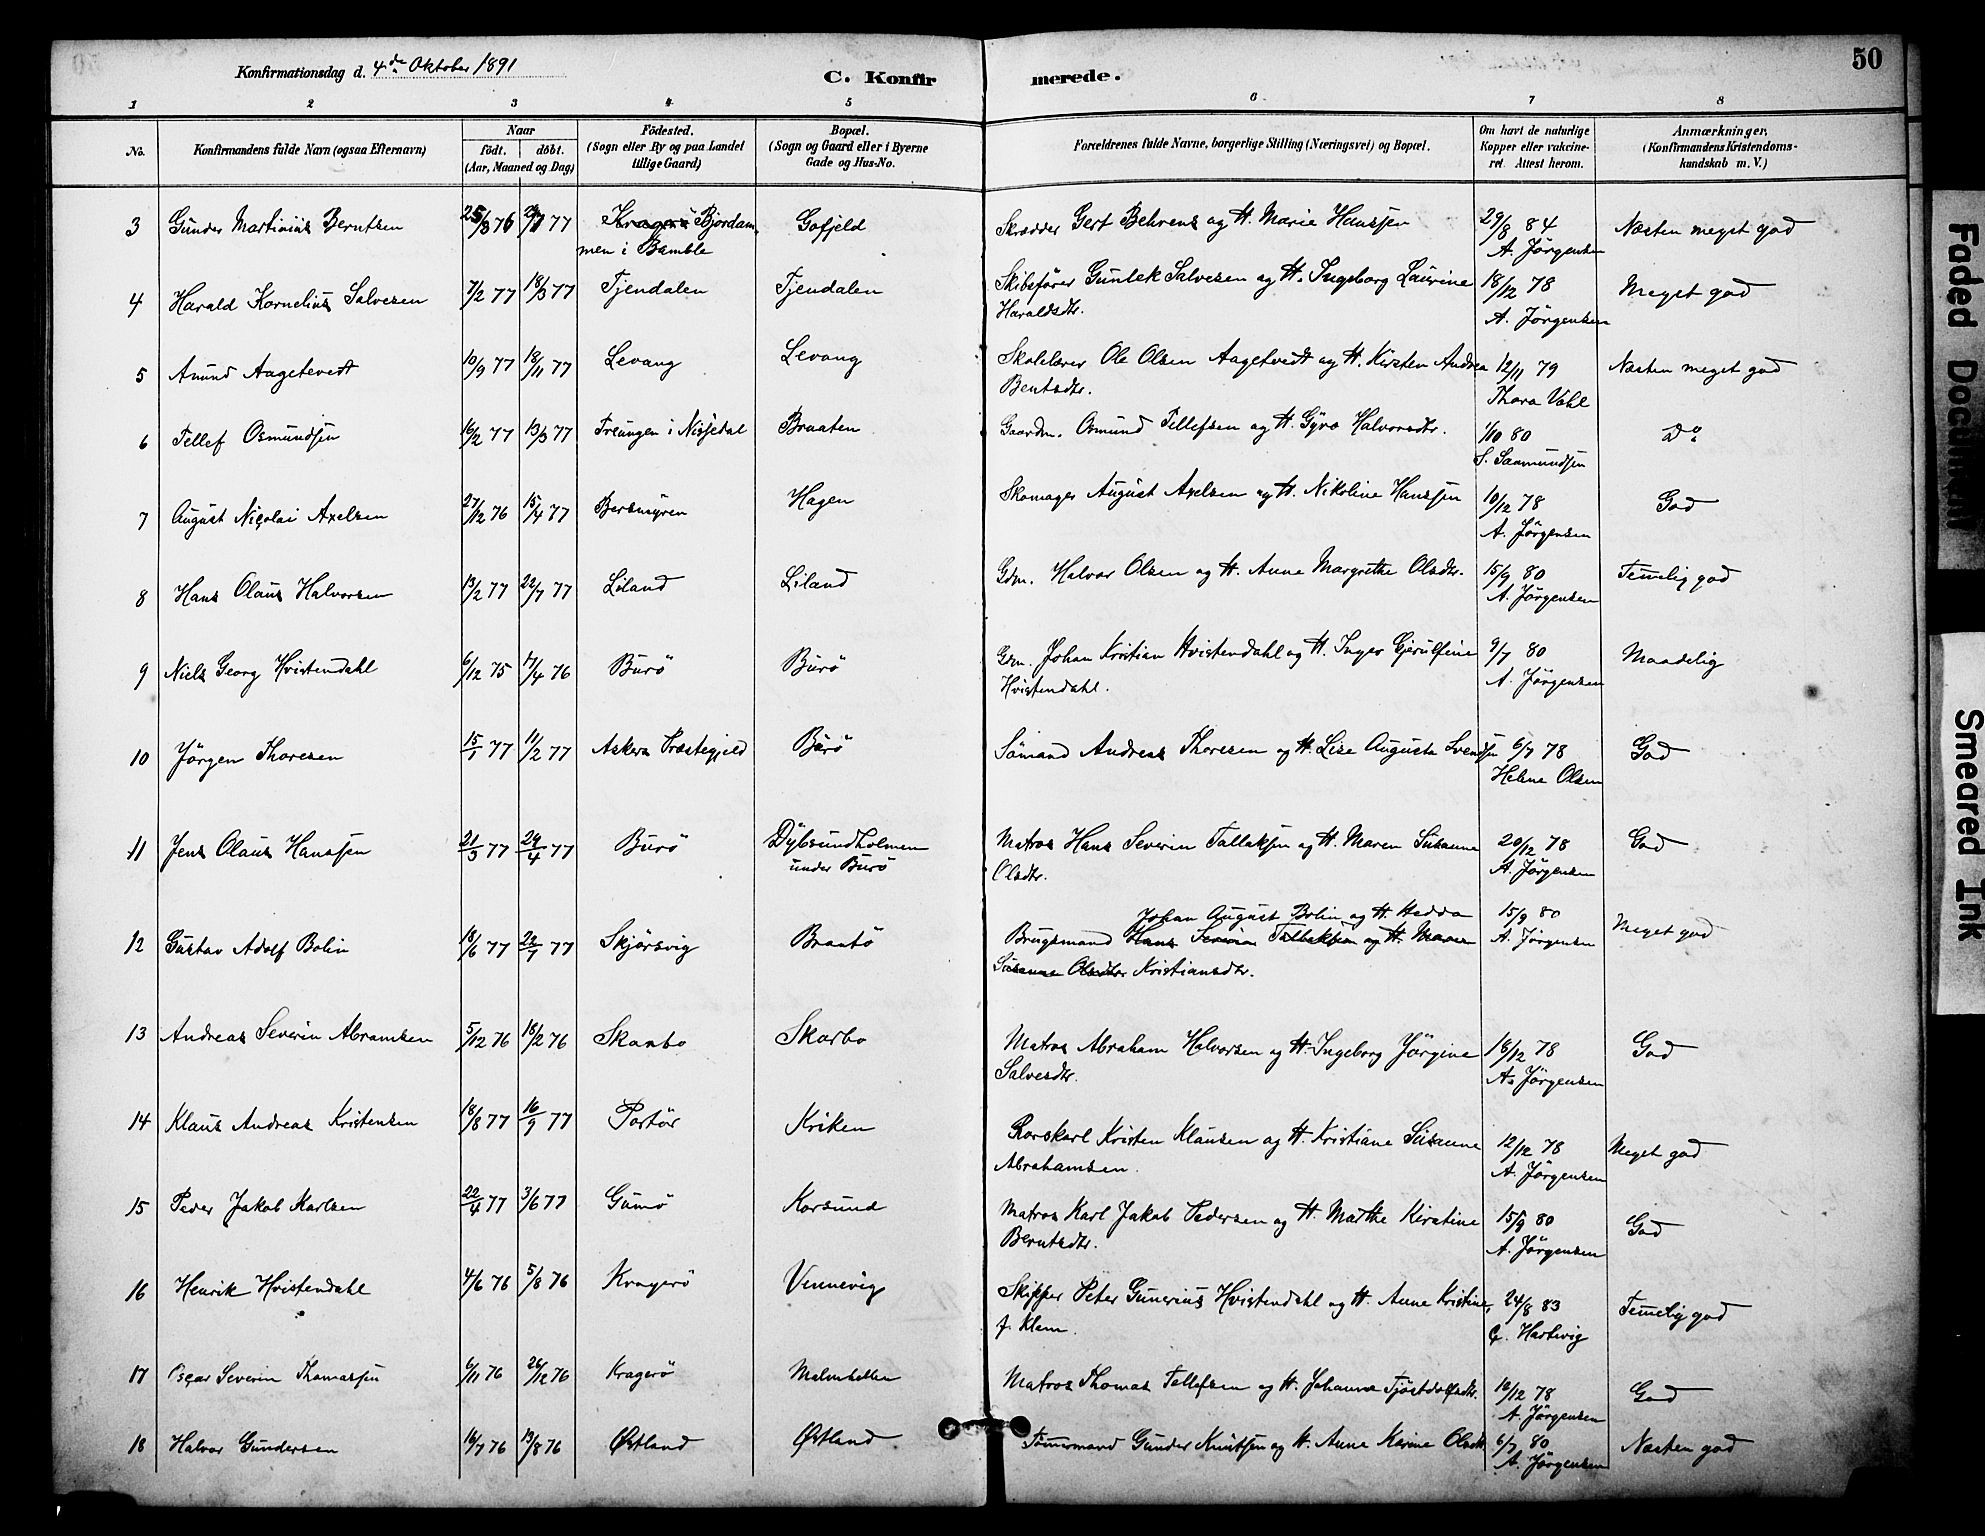 50
Konfirmationsdag d. 4de Oktober 1891
C. Konfirmerede.
1 2 3 4 5 6 7 8
No.
Konfirmandens fulde Navn (ogsaa Efternavn)
Naar
födt. döbt.
(Aar, Maaned og Dag)
Födested.
(Sogn eller By og paa Landet
tillige Gaard)
Bopæl.
(Sogn og Gaard eller i Byerne
Gade og Hus-No.
Forældrenes fulde Navne, borgerlige Stilling (Næringsvei) og Bopæl.
Om havt de naturlige
Kopper eller vakcine-
ret. Attest herom.
Anmærkninger.
(Konfirmandens Kristendoms-
kundskab m. V.)
3 Gunder Martinius Berntsen 25/3 76 77 Kragerö Bjordam- Gofjeld Skrædder Gert Behrens og H. Marie Hanssen 29/8 84 Næsten meget god
men i Bamble A. Jörgensen
4 Harald Kornelius Salvesen 7/2 77 18/3 77 Tjendalen Tjendalen Skibsförer Gunlek Salvesen og H. Ingeborg Laurine 18/12 78 Meget god
Haraldsdtr. A. Jörgensen
5 Anund Aagetvedt 10/9 77 18/11 77 Levang Levang Skolelærer Ole Olsen Aagetvedt og H. Kirsten Andrea 12/11 79 Næsten meget god
Bentsdtr. Thora Vahl
6 Tellef Osmundsen 16/2 77 13/3 77 Treungen i Nissedal Braaten Gaardm. Osmund Tellefsen og H. Gyro Halvorsdtr. 1/10 80 Do
S. Saamundsen
7 August Nicolai Axelsen 27/12 76 15/4 77 Bersmyren Hagen Skomager August Axelsen og H. Nikoline Hanssen 10/12 78 God
A. Jörgensen
8 Hans Olaus Halvorsen 13/2 77 22/7 77 Liland Liland Gdm. Halvor Olsen og H. Anne Margrethe Olsdtr. 15/9 80 Temmelig god
A. Jörgensen
9 Niels Georg Hvistendahl 6/12 75 17/4 76 Burö Burö Gdm. Johan Kristian Hvistendahl og H. Inger Gjerulfine 9/7 80 Maadelig
Hvistendahl. A. Jörgensen
10 Jörgen Thoresen 15/1 77 11/2 77 Askers Præstegjeld Burö Sömand Andreas Thoresen og H. Lise Augusta Svendsen 6/7 78 God
Helene Olsen
11 Jens Olaus Hanssen 21/3 77 29/4 77 Burö Dybsundholmen Matros Hans Severin Tallaksen og H. Maren Susanne 20/12 78 God
under Burö Olsdtr. A. Jörgensen
Johan August Bolin og H. Hedda 15/9 80
12 Gustav Adolf Bolin 18/6 77 22/7 77 Skjörsvig Brantö Brugsmand Hans Severin Tallaksen og H. Maren A. Jörgensen Meget god
Susanne Olsdtr Kristiansdtr.
13 Andreas Severin Abramsen 5/12 76 18/2 76 Skarbo Skarbo Matros Abraham Halvorsen og H. Ingeborg Jörgine 18/12 78 God
Salvesdtr. A. Jörgensen
14 Klaus Andreas Kristensen 18/8 77 16/9 77 Portör Kriken Rorskarl Kristen Klausen og H. Kristiane Susanne 12/12 78 Meget god
Abrahamsen. A. Jörgensen
15 Peder Jakob Karlsen 22/4 77 3/6 77 Gumö Korsund Matros Karl Jakob Pedersen og H. Marthe Kirstine 15/9 80 God
Berntsdtr. A. Jörgensen
16 Henrik Hvistendahl 4/6 76 5/8 76 Kragerö Vennevig Skipper Peter Gunerius Hvistendahl og H. Anne Kristine, 24/8 83 Temmelig god
f. Klem. Hartvig
17 Oscar Severin Thomassen 6/11 76 26/12 76 Kragerö Matros Thomas Tellefsen og H. Johanne Tjöstdolfsdtr. 18/12 78 God
A. Jörgensen
18 Halvor Gundersen 16/7 76 13/8 76 Østland Østland Tömmermand Gunder Knutsen og H. Anne Karine Olsdtr. 6/7 80 Næsten god
A. Jörgensen
Faded Document
Smeared Ink